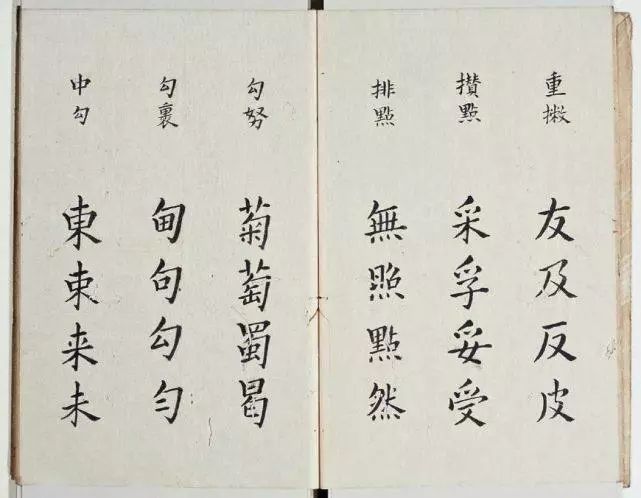 重撇
友及反皮
攢點
采孚妥受
排點
無照點然
勾努
菊萄蜀曷
勾裏
甸句勾勻
中勾
東束来未